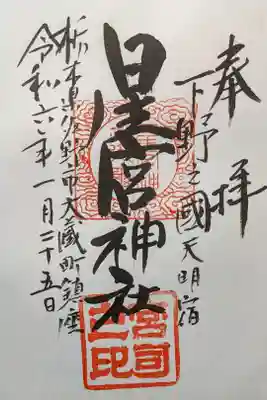 奉拝
下野之國天明宿
星宮神社
栃木県佐野市大蔵町鎮座
令和六年一月二十五日
宮司之印